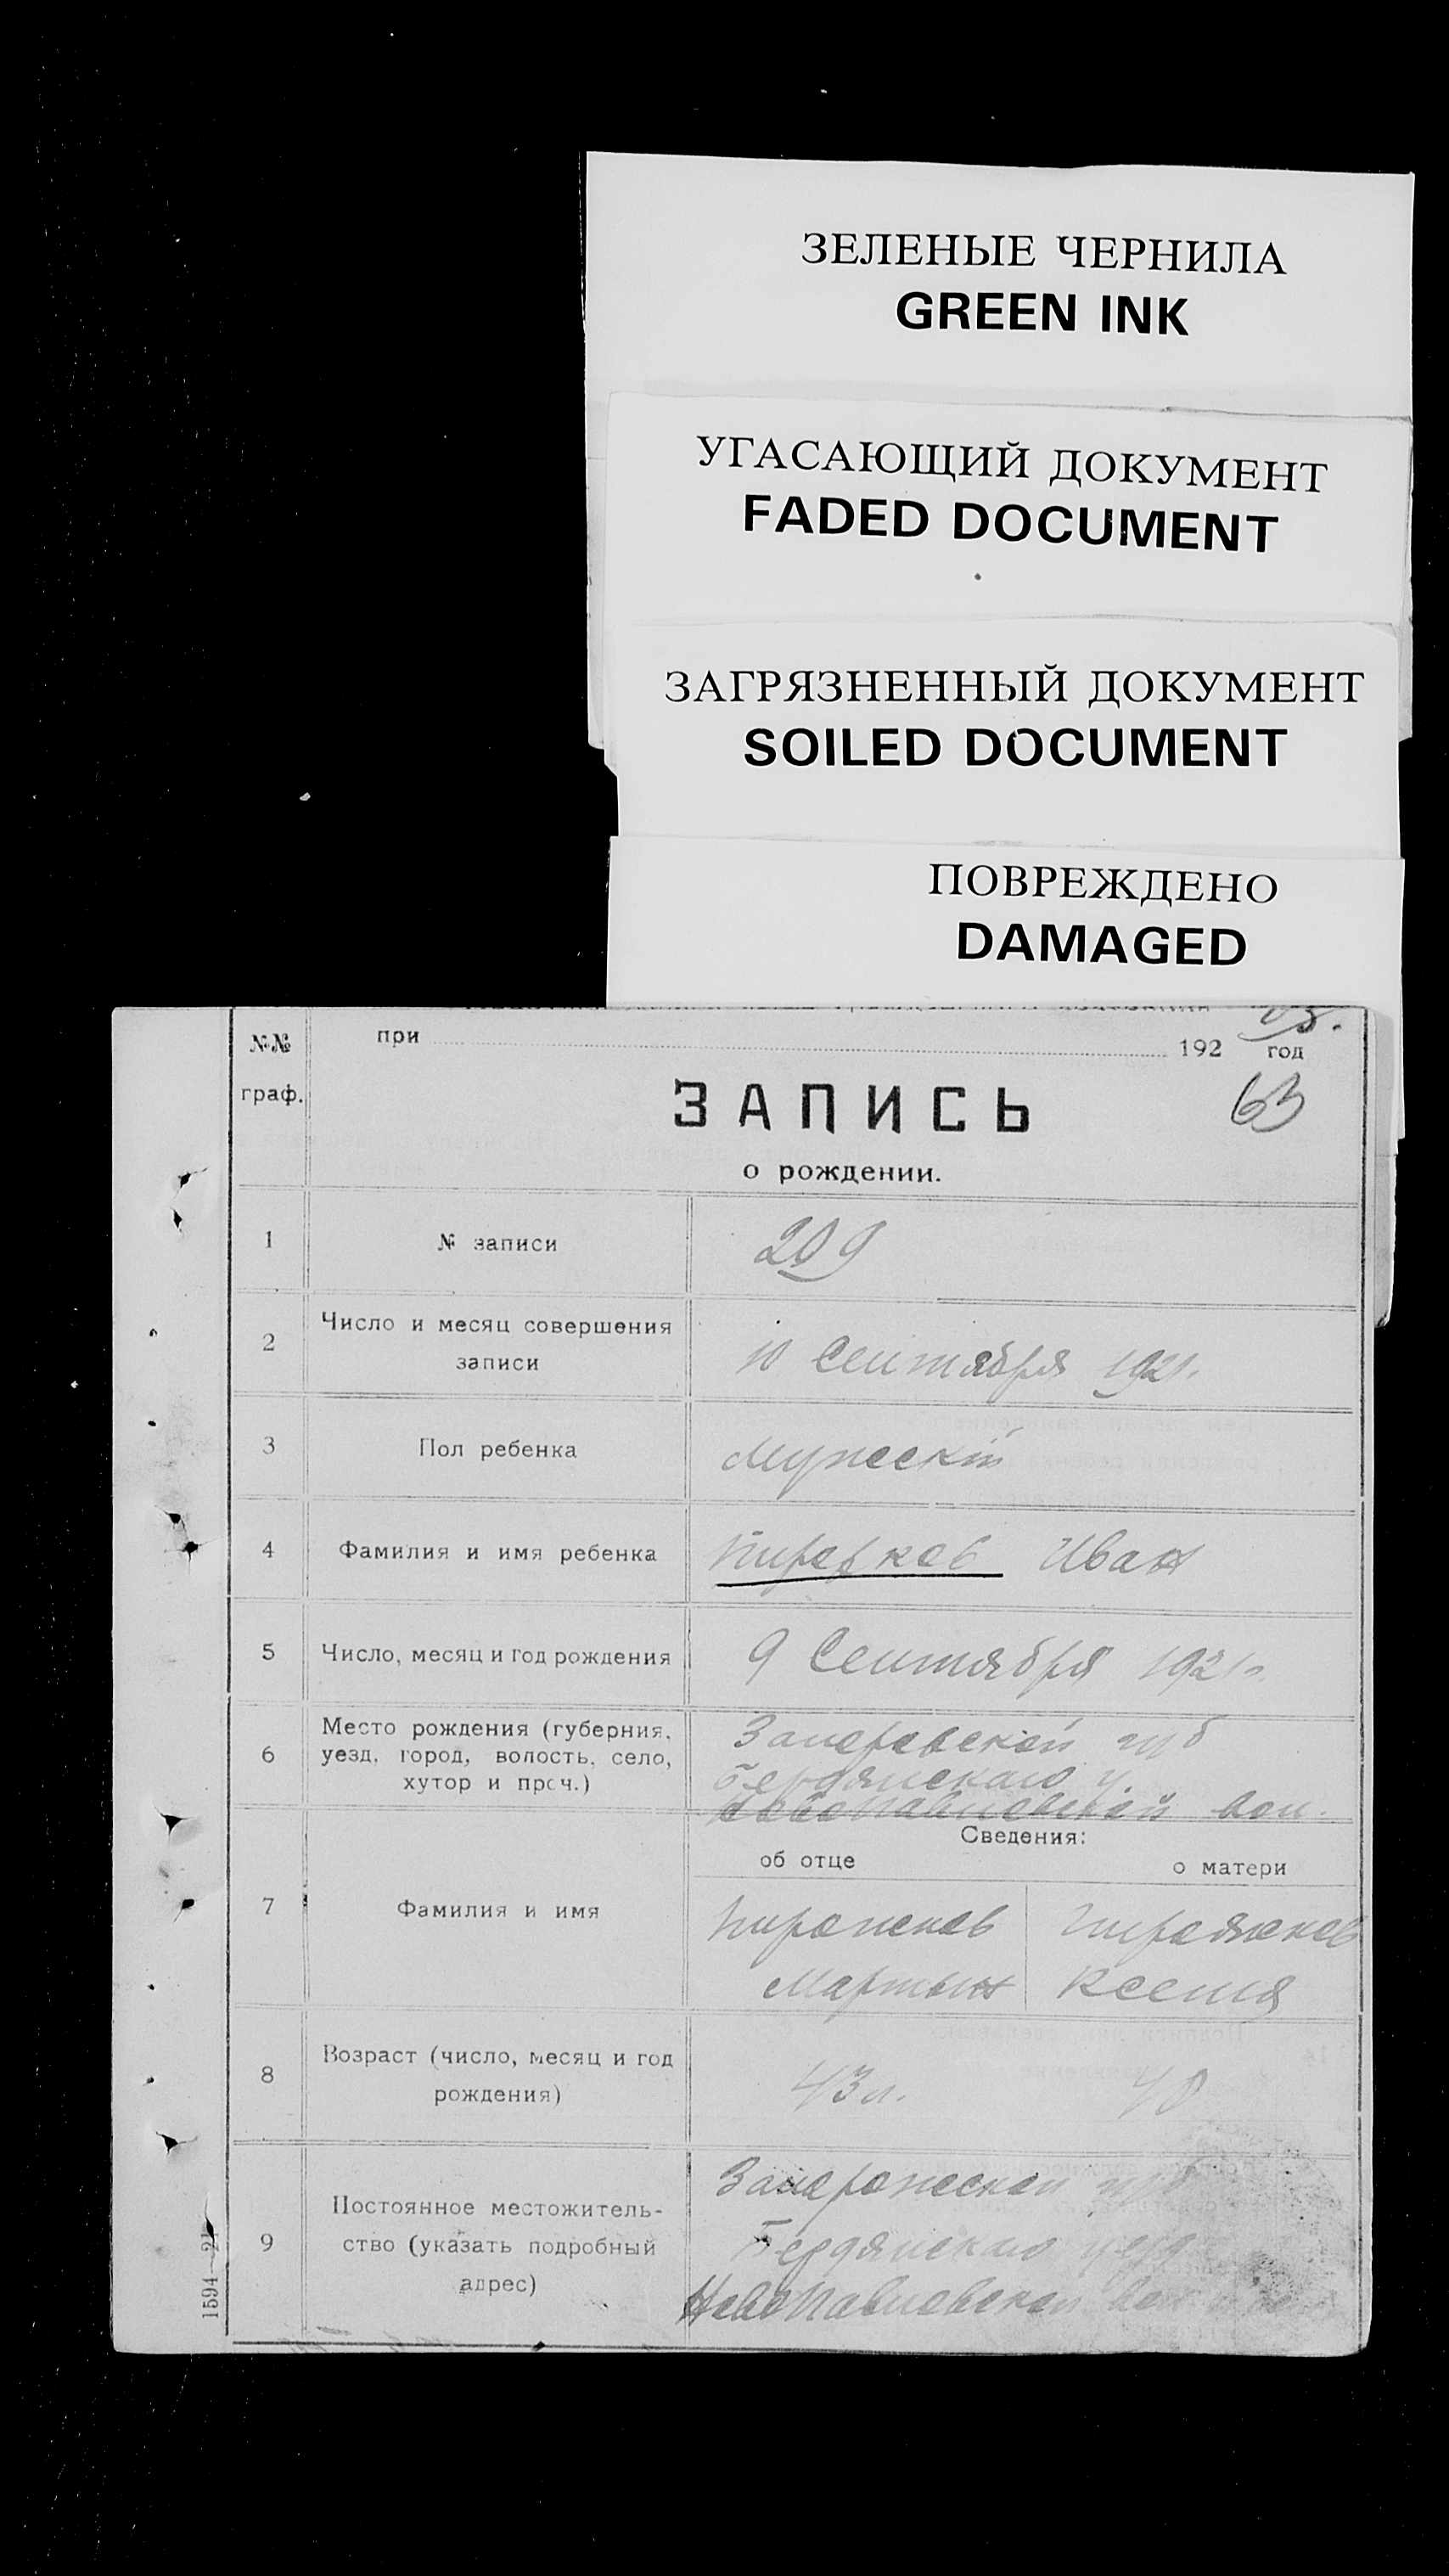 ЗЕЛЕНЫЕ ЧЕРНИЛА
GREEN INK
УГАСАЮЩИЙ ДОКУМЕНТ
FADED DOCUMENT
ЗАГРЯЗНЕННЫЙ ДОКУМЕНТ
SOILED DOCUMENT
ПОВРЕЖДЕНО
DAMAGED
№№ граф.
при 192 год
63
ЗАПИСЬ
о рождении.
1 № записи 209
2 Число и месяц совершения записи 10 Сентября 1921.
3 Пол ребенка
4 Фамилия и имя ребенка Иван
5 Число, месяц и год рождения 9 Сентября 1921г.
6 Место рождения (губерния, уезд, город, волость, село, хутор и проч.)
губ
Бердянскаго у.
Новопавловской вол.
Сведения:
об отце о матери
7 Фамилия и имя
Мартын Ксения
8 Возраст (число, месяц и год рождения) 43 л. 40
9 Постоянное местожительство (указать подробный адрес)
губ
Бердянскаго уезд
Новопавловской вол
1594—21